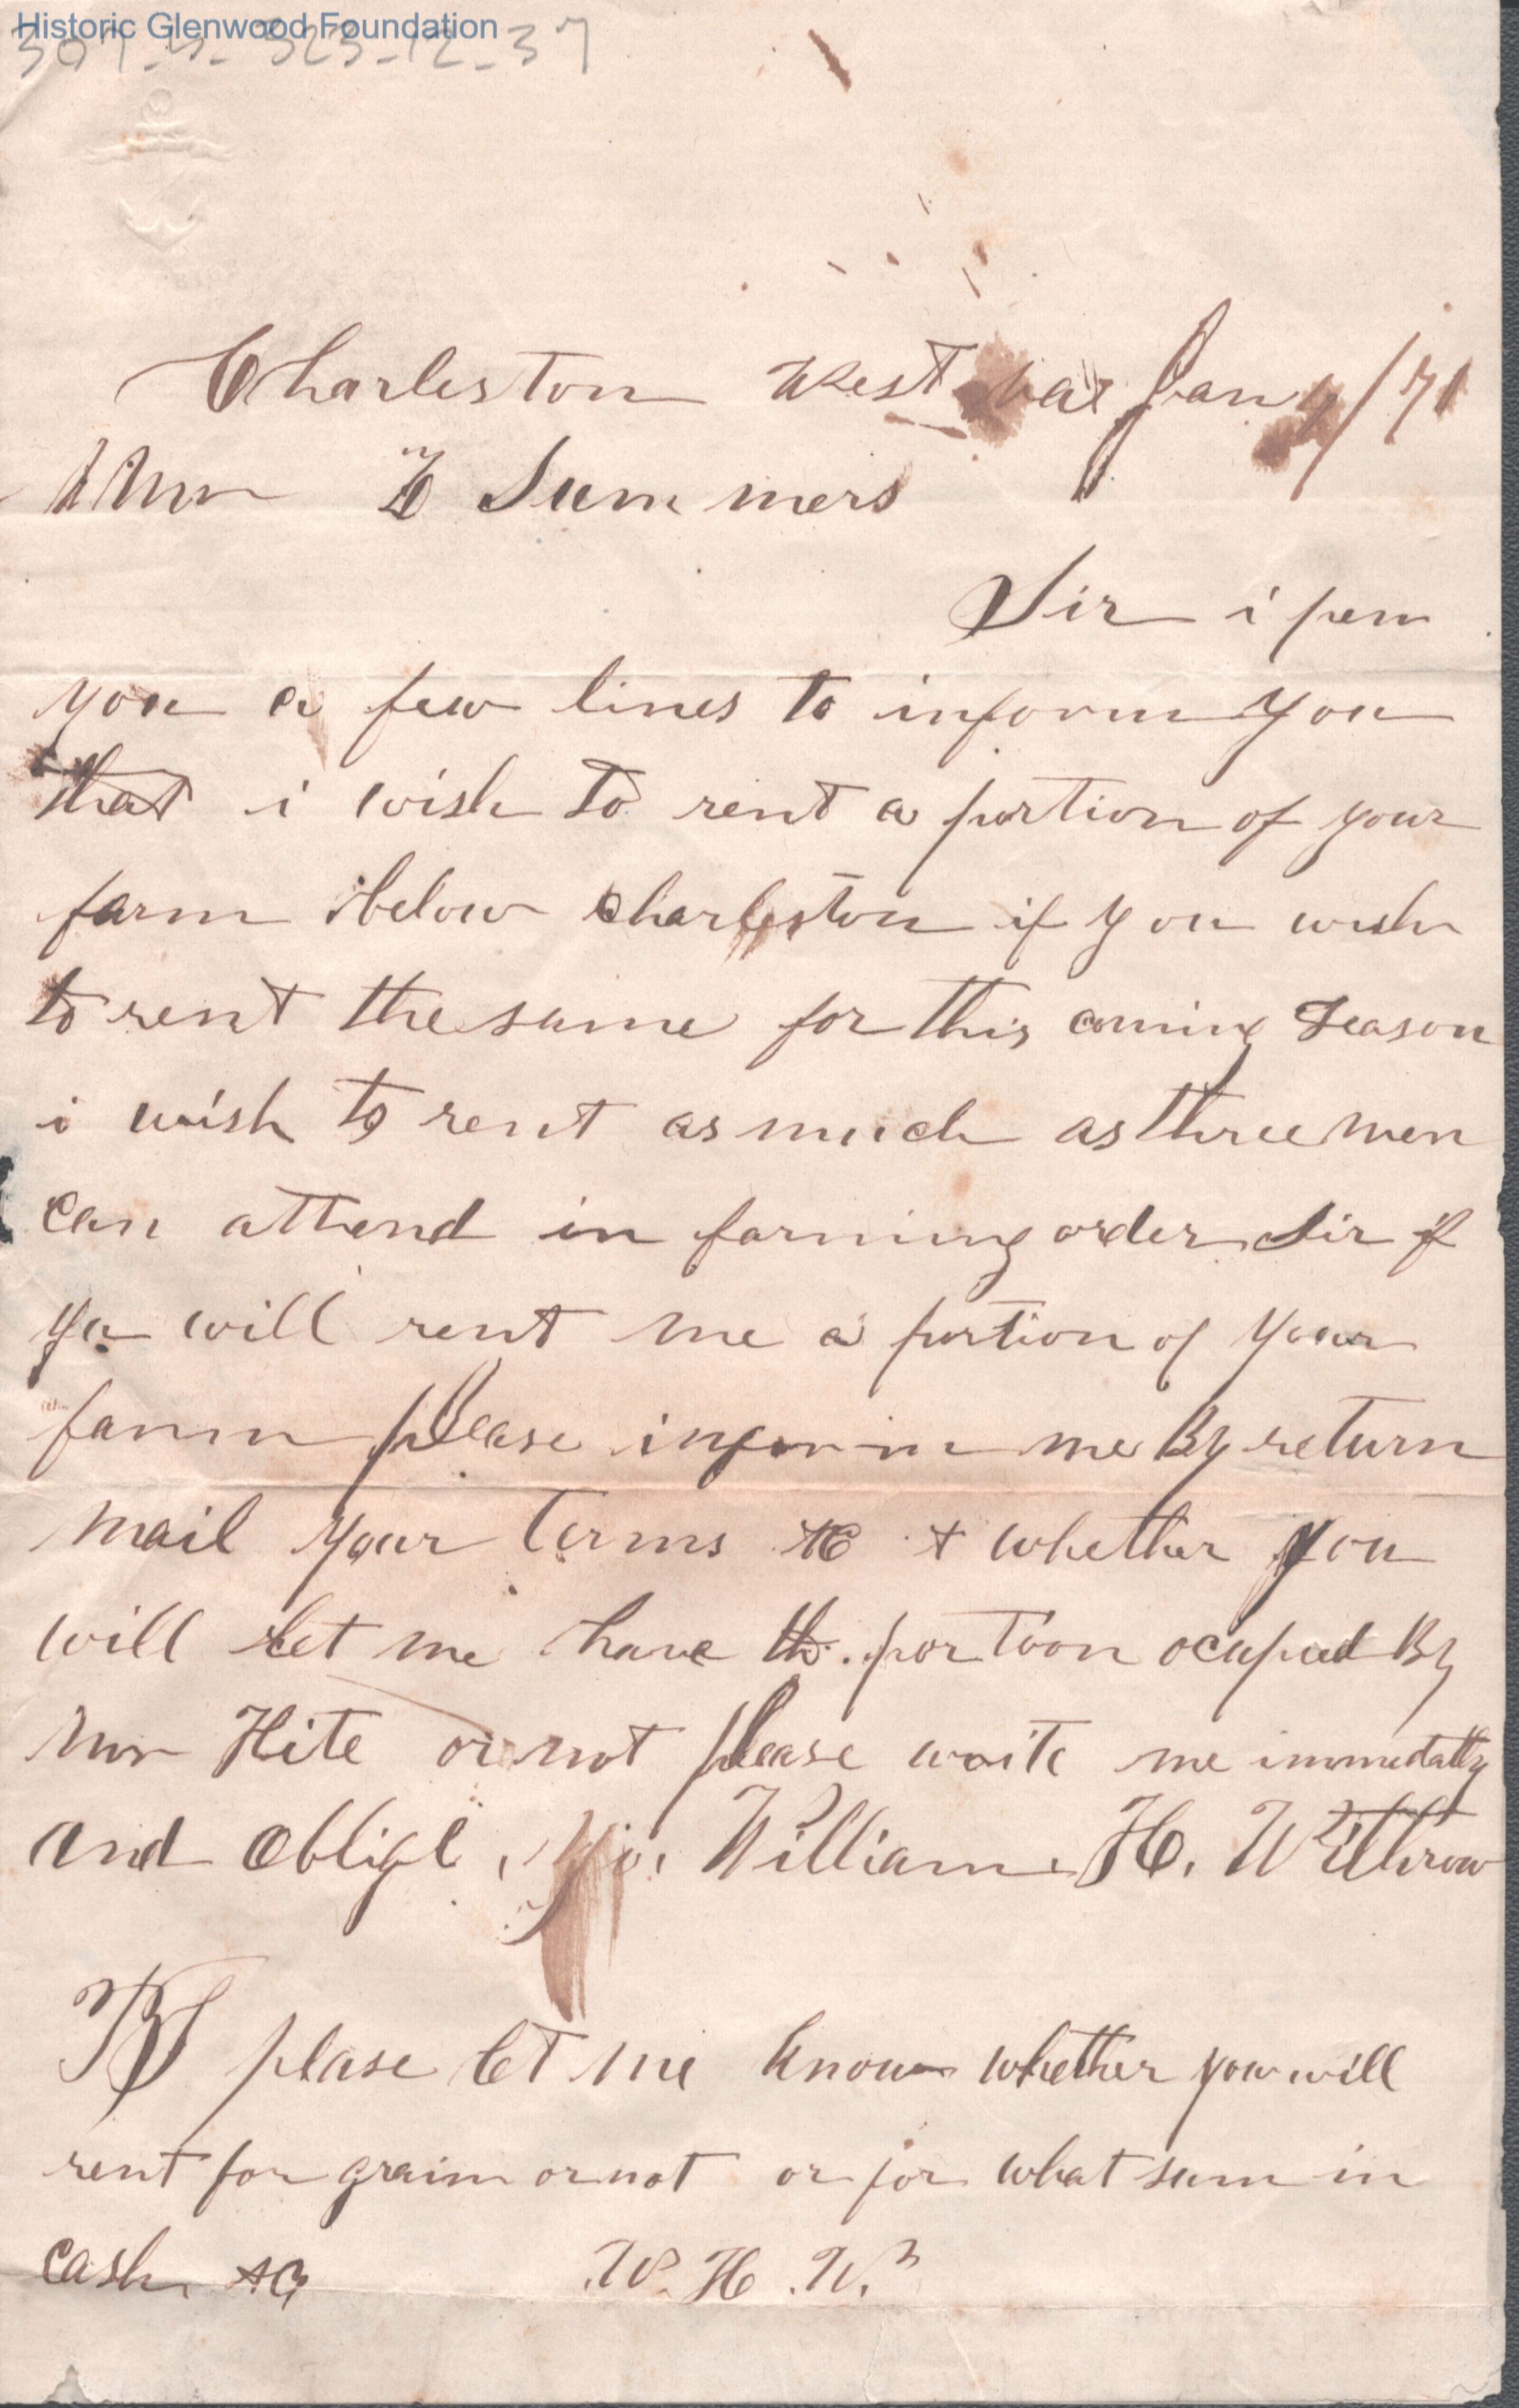 Historic Glenwood Foundation
307-4-323-12-37
Charleston West va Jan 4/71
Mr Summers
Sir i pen
you a few lines to inform you
that i wish to rent a portion of your
farm below charleston if you wish
to rent the same for this coming Season
i wish to rent as much as three men
can attend in farming order Sir if
yu will rent me a portion of your
farm please inform me By return
mail your terms &C & whether you
will let me have the portoon ocupied By
mr Hite or not please write me immedatly
and oblige, yo, William H. Withrow
plase let me know whether you will
rent for grain or not or for what sum in
cash &C W. H. W.